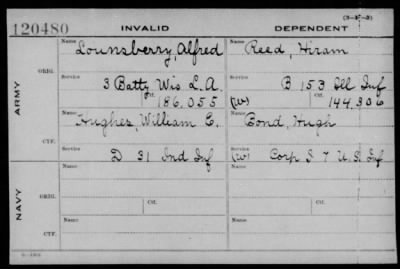 (3-1-3)
120480 INVALID DEPENDENT
Name Lounsberry, Alfred Name Reed, Hiram
ORIG.
Service 3 Batty Wis L.A. Service B 153 Ill Inf
ARMY
Ctf. 186.055 (W) Ctf. 144,306
Name Hughes, William E. Name Bond, Hugh
CTF.
Service D 31 Ind Inf Service (W) Corp I 7 U.S. Inf
Name Name
ORIG.
Service Ctf. Service Ctf.
NAVY
Name Name
CTF.
Service Service